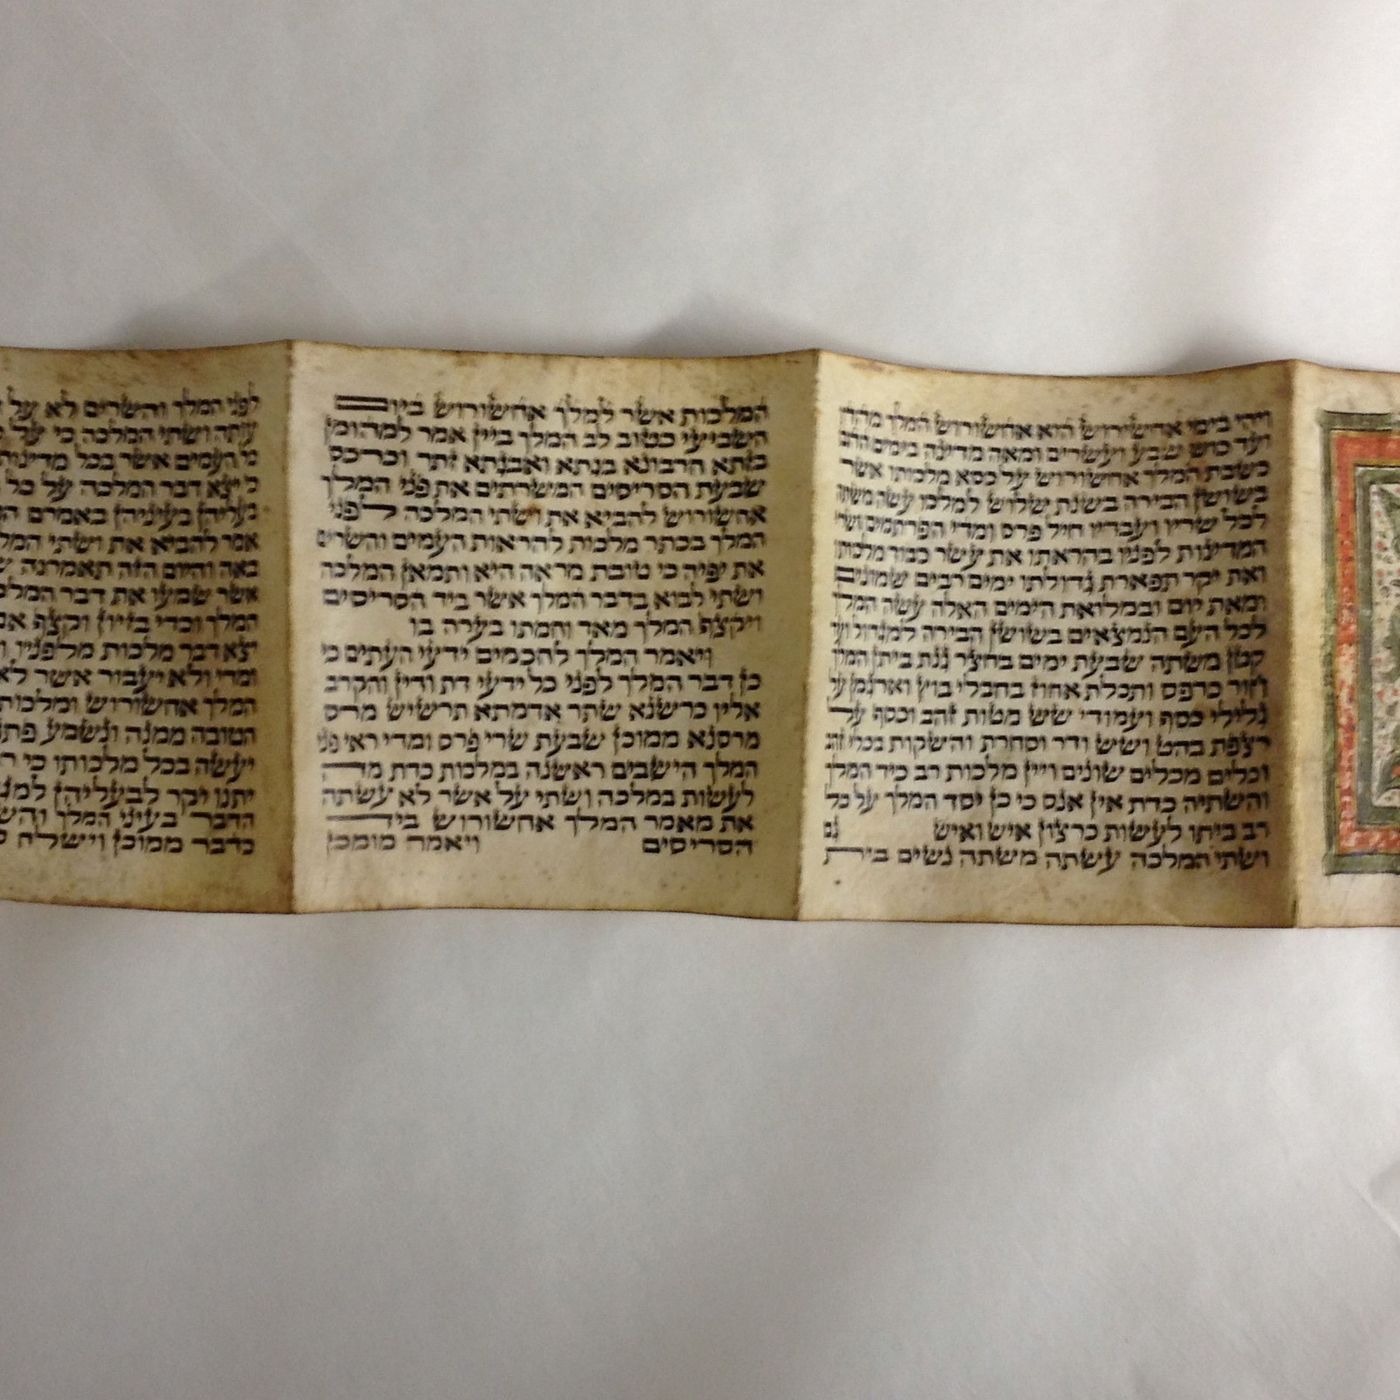 ויהי בימי אחשורוש הוא אחשורוש המלך מהדו
ועד כוש שבע ועשרים ומאה מדינה בימים ההם
כשבת המלך אחשורוש על כסא מלכותו אשר
בשושן הבירה בשנת שלוש למלכו עשה משתה
לכל שריו ועבדיו חיל פרס ומדי הפרתמים ושרי
המדינות לפניו בהראתו את עשר כבוד מלכותו
ואת יקר תפארת גדולתו ימים רבים שמונים
ומאת יום ובמלואת הימים האלה עשה המלך
לכל העם הנמצאים בשושן הבירה למגדול ועד
קטן משתה שבעת ימים בחצר גנת ביתן המלך
חור כרפס ותכלת אחוז בחבלי בוץ וארגמן על
גלילי כסף ועמודי שש מטות זהב וכסף על
רצפת בהט ושש ודר וסחרת והשקות בכלי זהב
וכלים מכלים שונים ויין מלכות רב כיד המלך
והשתיה כדת אין אנס כי כן יסד המלך על כל
רב ביתו לעשות כרצון איש ואיש גם
ושתי המלכה עשתה משתה נשים בית
המלכות אשר למלך אחשורוש ביום
השביעי כטוב לב המלך ביין אמר למהומן
בזתא חרבונא בגתא ואבגתא זתר וכרכס
שבעת הסריסים המשרתים את פני המלך
אחשורוש להביא את ושתי המלכה לפני
המלך בכתר מלכות להראות העמים והשרים
את יפיה כי טובת מראה היא ותמאן המלכה
ושתי לבוא בדבר המלך אשר ביד הסריסים
ויקצף המלך מאד וחמתו בערה בו
ויאמר המלך לחכמים ידעי העתים כי
כן דבר המלך לפני כל ידעי דת ודין והקרב
אליו כרשנא שתר אדמתא תרשיש מרס
מרסנא ממוכן שבעת שרי פרס ומדי ראי פני
המלך הישבים ראשנה במלכות כדת מה
לעשות במלכה ושתי על אשר לא עשתה
את מאמר המלך אחשורוש ביד
הסריסים ויאמר מומכן
לפני המלך והשרים לא על
עותה ושתי המלכה כי על
העמים אשר בכל מדינות
כי יצא דבר המלכה על כל
בעליהן בעיניהן באמרם
אמר להביא את ושתי המלכה
באה והיום הזה תאמרנה
אשר שמעו את דבר המלכה
המלך וכדי בזיון וקצף אם
יצא דבר מלכות מלפניו
ומדי ולא יעבור אשר לא
המלך אחשורוש ומלכותה
הטובה ממנה ונשמע פתגם
יעשה בכל מלכותו כי
יתנו יקר לבעליהן למגדול
הדבר בעיני המלך
כדבר ממוכן וישלח